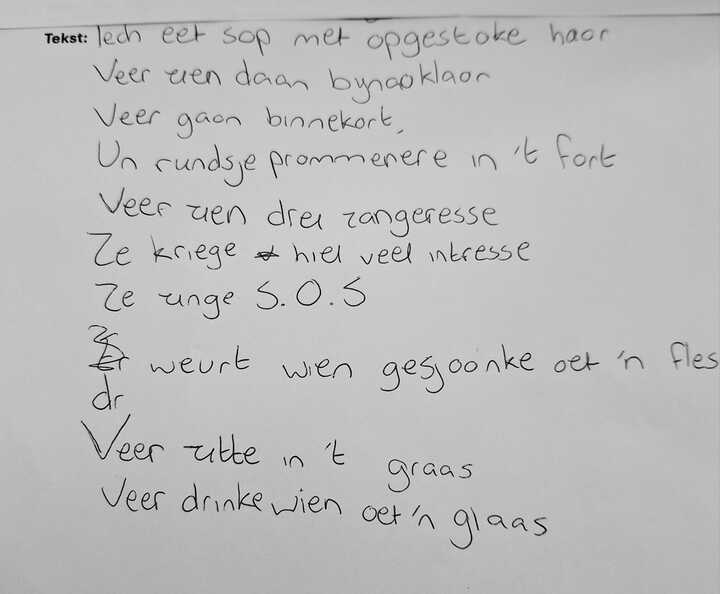 Tekst: Iech eet sop met opgestoke haor
Veer zien daan bynao klaor
Veer gaon binnekort,
Un rundsje prommenere in 't fort
Veer zien drei zangeresse
Ze kriege hiel veel intresse
Ze zinge S.O.S
dr weurt wien gesjoonke oet 'n fles
Veer zitte in 't graas
Veer drinke wien oet 'n glaas